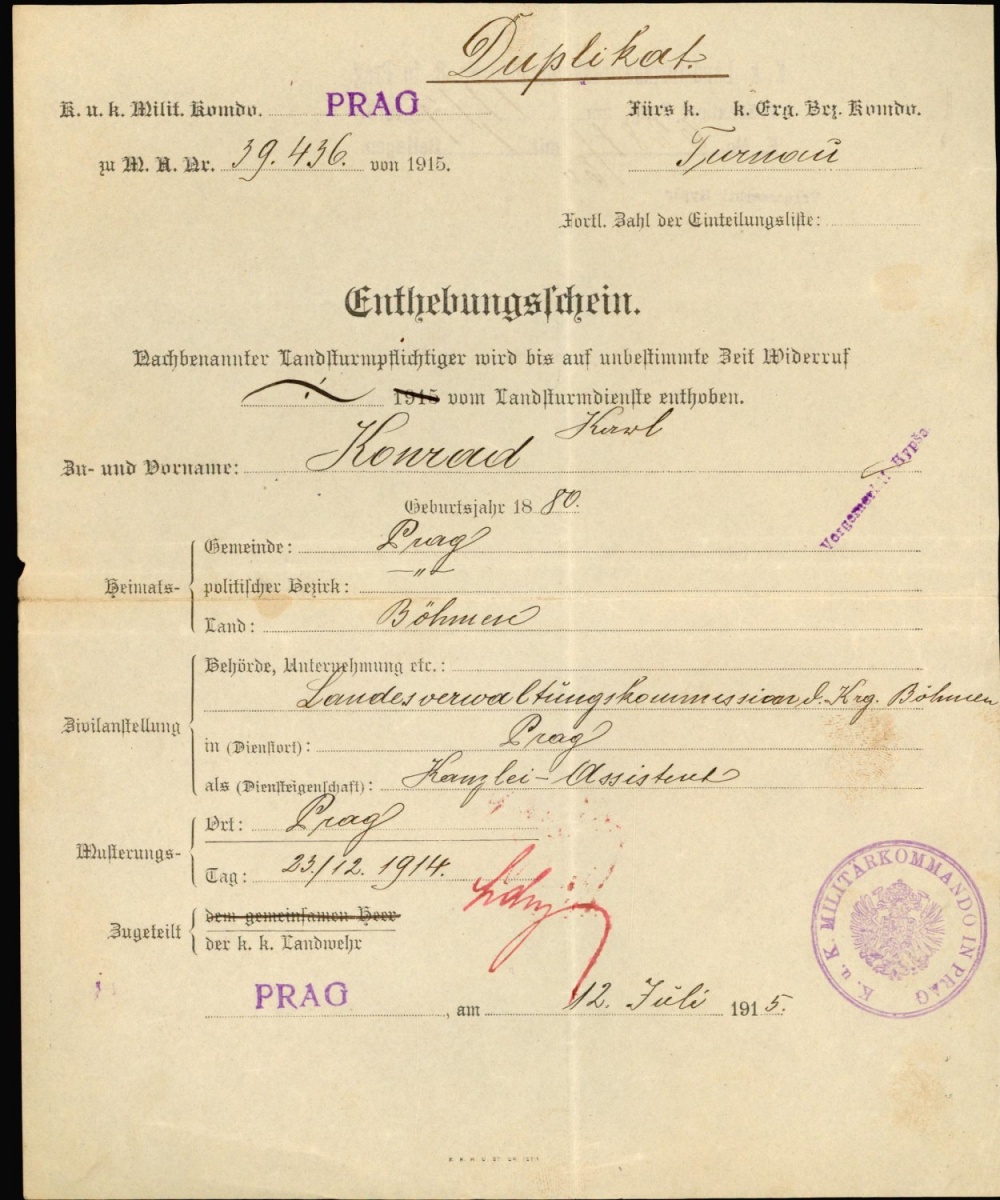 Duplikat.
K. u. k. Milit. Komdo. PRAG
Fürs k. k. Erg. Bez. Komdo.
zu M. A. Nr. 39.436. von 1915.
Turnau
Fortl. Zahl der Einteilungsliste:
Enthebungsschein.
Nachbenannter Landsturmpflichtiger wird bis auf unbestimmte Zeit Widerruf
1915 vom Landsturmdienste enthoben.
Zu- und Vorname: Konrad Karl
Vorgemerkt:
Geburtsjahr 1880.
Gemeinde: Prag
Heimats- politischer Bezirk: —"—
Land: Böhmen
Behörde, Unternehmung etc.:
Landesverwaltungskommission d. Krg. Böhmen
Zivilanstellung
in (Dienstort): Prag
als (Diensteigenschaft): Kanzlei-Assistent
Ort: Prag
Musterungs-
Tag: 23./12. 1914.
dem gemeinsamen Heer
Zugeteilt
der k. k. Landwehr
K. u. K. MILITÄRKOMMANDO IN PRAG
PRAG, am 12. Juli 1915.